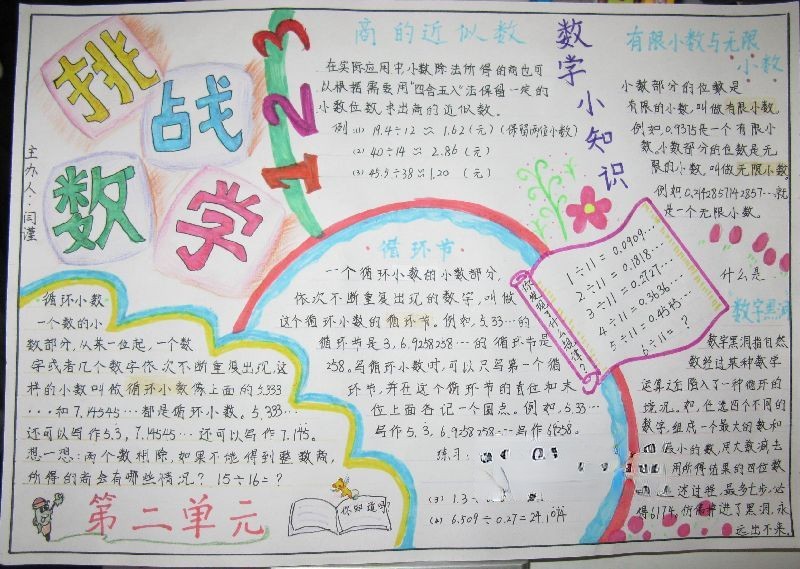 挑战
数学
123
主办人：闫瑾
商的近似数
在实际应用中,小数除法所得的商也可
以根据需要用"四舍五入"法保留一定的
小数位数,求出商的近似数。
例：(1) 19.4÷12≈1.62(元)(保留两位小数)
(2) 40÷14≈2.86(元)
(3) 45.5÷38≈1.20(元)
数学小知识
有限小数与无限
小数
小数部分的位数是
有限的小数,叫做有限小数,
例如,0.9375是一个有限小
数。小数部分的位数是无
限的小数,叫做无限小数。
例如0.2142857142857…就
是一个无限小数。
循环小数
一个数的小
数部分,从某一位起,一个数
字或者几个数字依次不断重复出现,这
样的小数叫做循环小数像上面的5.333
…和7.14545…都是循环小数。5.333…
还可以写作5.3,7.14545…还可以写作7.145。
想一想：两个数相除,如果不能得到整数商,
所得的商会有哪些情况？15÷16=?
第二单元
你知道吗?
循环节
一个循环小数的小数部分,
依次不断重复出现的数字,叫做
这个循环小数的循环节。例如,5.33…的
循环节是3,6.9258258…的循环节是
258。写循环小数时,可以只写第一个循
环节,并在这个循环节的首位和末
位上面各记一个圆点。例如,5.33…
写作5.3,6.9258258…写作6.9258。
练习：
(3) 1.3
(2) 6.509÷0.27=24.1
你发现了什么规律?
1÷11=0.0909…
2÷11=0.1818…
3÷11=0.2727…
4÷11=0.3636…
5÷11=0.4545…
6÷11=?
什么是
数字黑洞
数字黑洞指自然
数经过某种数学
运算之后陷入了一种循环的
境况。如,任选四个不同的
数字,组成一个最大的数和
最小的数,用大数减去
用所得结果的四位数
上述过程,最多七步,必
得6174,仿佛掉进了黑洞,永
远出不来。